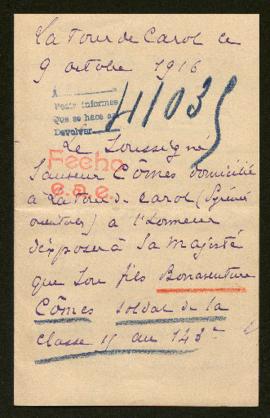 La Tour de Carol ce
9 octobre 1916
A
Pedir informes
Que se hace al
Devolver
41035
Le Soussigné
Fecho
Sauveur Cômes domicilié
à La Tour de Carol (Pyrénées
orientales) a l'honneur
d'exposer à Sa Majesté
que Son fils Bonaventure
Cômes soldat de la
classe 15 au 143e